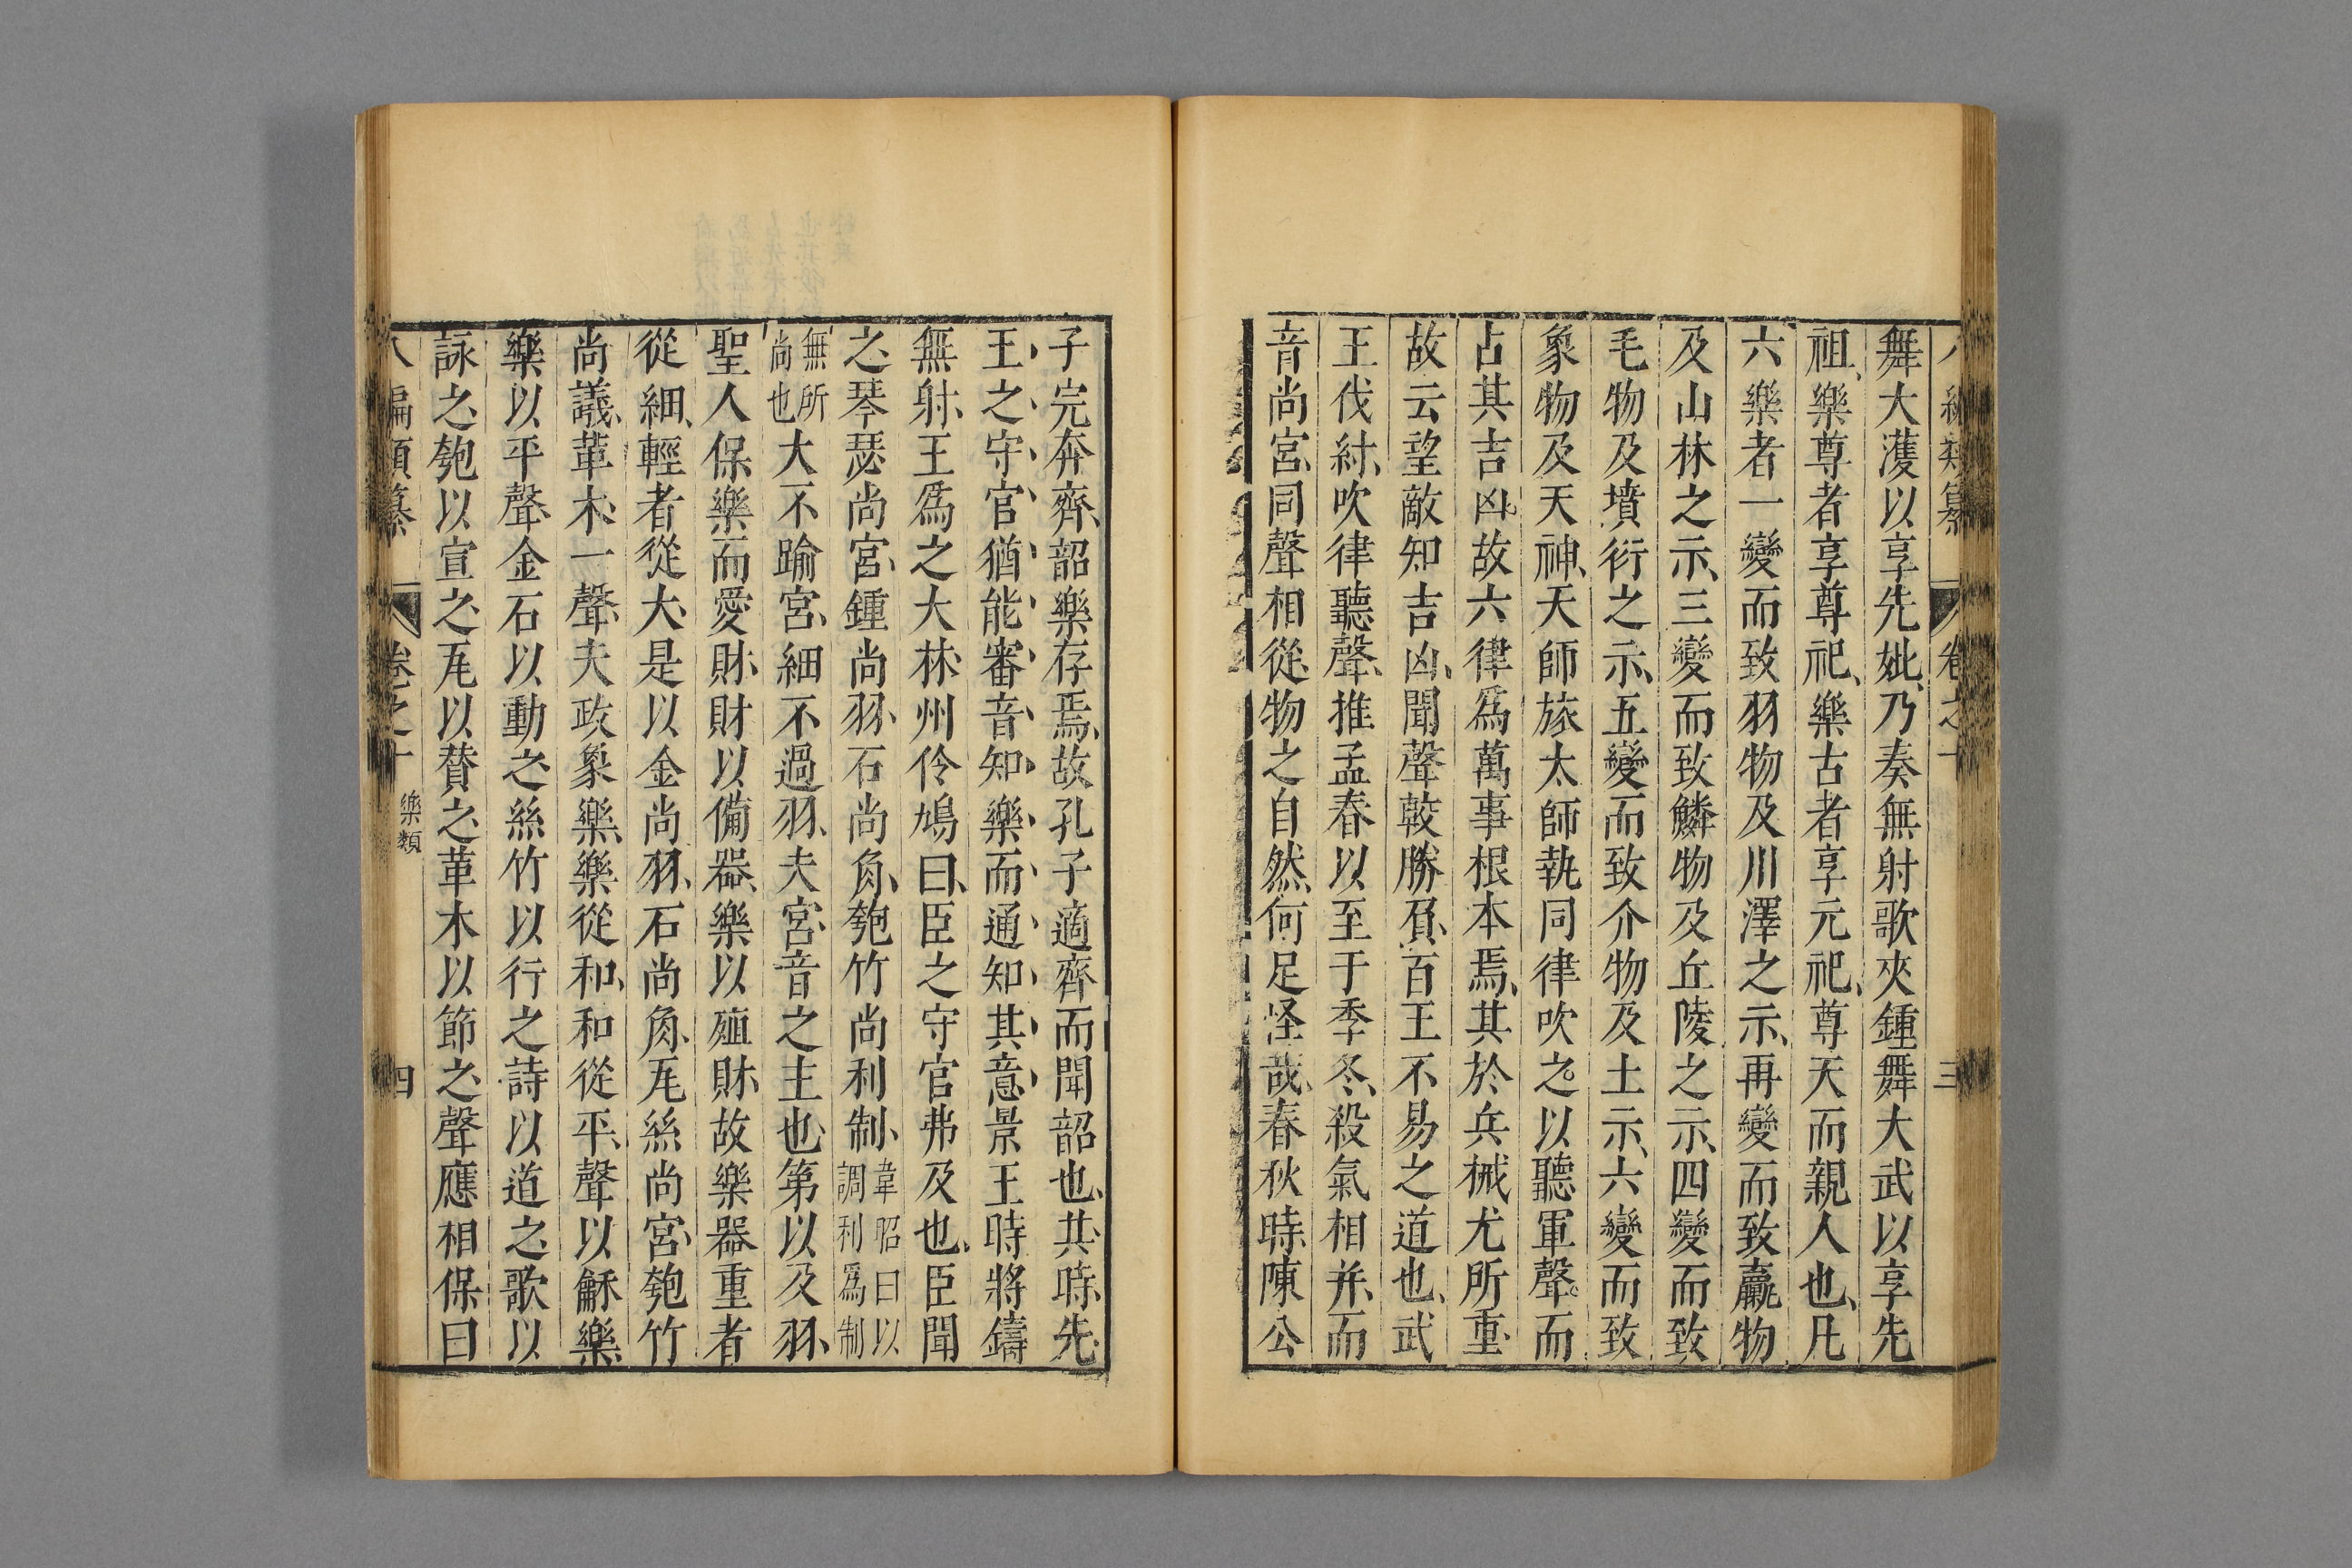 八編類纂 卷之十 三
舞大濩以享先妣、乃奏無射歌夾鍾舞大武以享先
祖、樂尊者享尊祀、樂古者享元祀、尊天而親人也、凡
六樂者一變而致羽物及川澤之示、再變而致臝物
及山林之示、三變而致鱗物及丘陵之示、四變而致
毛物及墳衍之示、五變而致介物及土示、六變而致
象物及天神、天師旅太師執同律吹之。以聽軍聲。而
占其吉凶。故六律爲萬事根本焉、其於兵械尤所重、
故云望敵知吉凶、聞聲較勝負、百王不易之道也、武
王伐紂、吹律聽聲、推孟春以至于季冬、殺氣相并、而
音尚宮、同聲相從、物之自然、何足怪哉、春秋時、陳公
子完奔齊、韶樂存焉、故孔子適齊而聞韶也、其時、先
王之守官猶能審音知樂而通知其意景王時將鑄
無射、王爲之大林、州伶鳩曰、臣之守官弗及也、臣聞
之、琴瑟尚宮、鍾尚羽、石尚角、匏竹尚利制、韋昭曰以調利爲制
無所尚也大不踰宮、細不過羽、夫宮、音之主也、第以及羽、
聖人保樂而愛財、財以備器、樂以殖財、故樂器重者
從細、輕者從大、是以金尚羽、石尚角、瓦絲尚宮、匏竹
尚議、革木、一聲、夫政象樂、樂從和、和從平、聲以龢樂、
樂以平聲、金石以動之、絲竹以行之、詩以道之、歌以
詠之、匏以宣之、瓦以贊之、革木以節之、聲應相保曰
八編類纂 卷之十 樂類 四